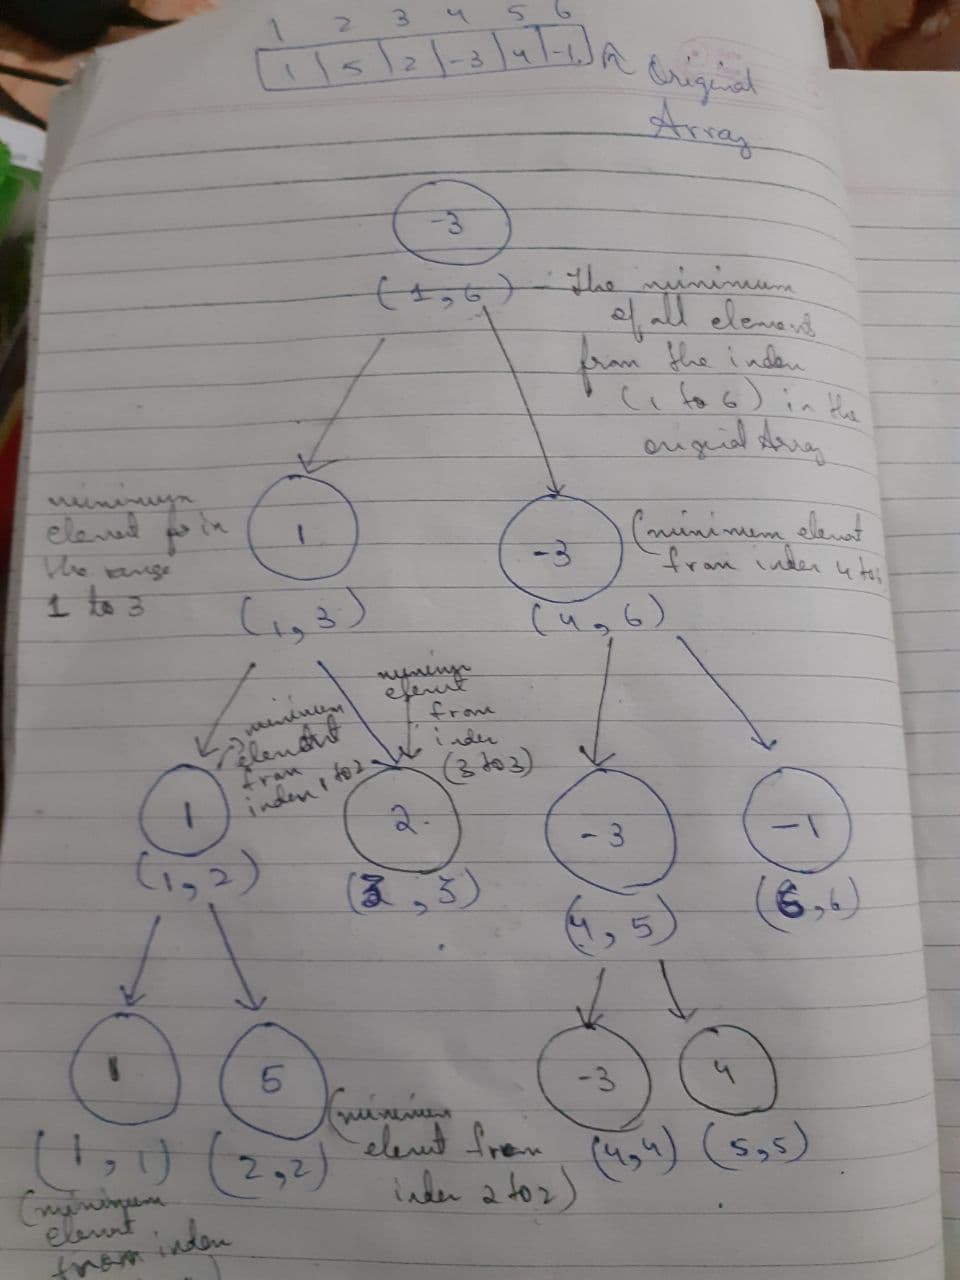 1 2 3 4 5 6
1 5 2 -3 4 -1
Original
Array
-3
(1,6) - The minimum
of all element
from the index
(1 to 6) in the
original Array
minimum
element in
the range
1 to 3
1
(1,3)
-3
(4,6)
(minimum element
from index 4 to
minimum
element
from
index 1 to 2
minimum
element
from
index
(3 to 3)
1
(1,2)
2
(3,3)
-3
(4,5)
-1
(6,6)
1
(1,1)
5
(2,2)
-3
(4,4)
4
(5,5)
(minimum
element from
index 2 to 2)
(minimum
element
from index